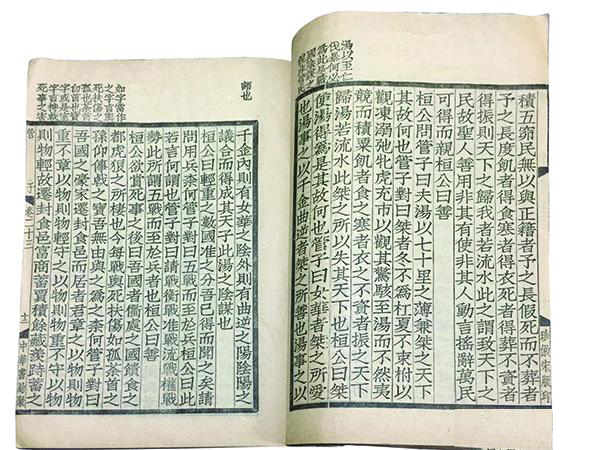 湯以至仁
伐桀何以
為此
積五雍民無以與正籍者予之長假死而不葬者
予之長度飢者得食寒者得衣死者得葬不資者
得振則天下之歸我者若流水此之謂致天下之
民故聖人善用非其有使非其人動言搖辭萬民
可得而親桓公曰善
桓公問管子曰夫湯以七十里之薄兼桀之天下
其故何也管子對曰桀者冬不為杠夏不束柎以
觀凍溺弛牝虎充市以觀其驚駭至湯而不然夷
競而積粟飢者食之寒者衣之不資者振之天下
歸湯若流水此桀之所以失其天下也桓公曰桀
使湯得為是其故何也管子曰女華者桀之所愛
也湯事之以千金曲逆者桀之所善也湯事之以
珍倣宋版印
千金內則有女華之陰外則有曲逆之陽陰陽之
議合而得成其天子此湯之陰謀也
桓公曰輕重之數國准之分吾已得而聞之矣請
問用兵奈何管子對曰五戰而至於兵桓公曰此
若言何謂也管子對曰請戰衡戰准戰流戰權戰
勢此所謂五戰而至於兵者也桓公曰善
桓公欲賞死事之後曰吾國者衢處之國饋食之
都虎狼之所棲也今每戰輿死扶傷如孤荼首之
孫仰倳戟之寶吾無由與之為之奈何管子對曰
吾國之豪家遷封食邑而居者君章之以物則物
重不章以物則物輕守之以物則物重不守以物
則物輕故遷封食邑富商蓄賈積餘藏羨跱蓄之
管子 卷二十三
十二 中華書局聚